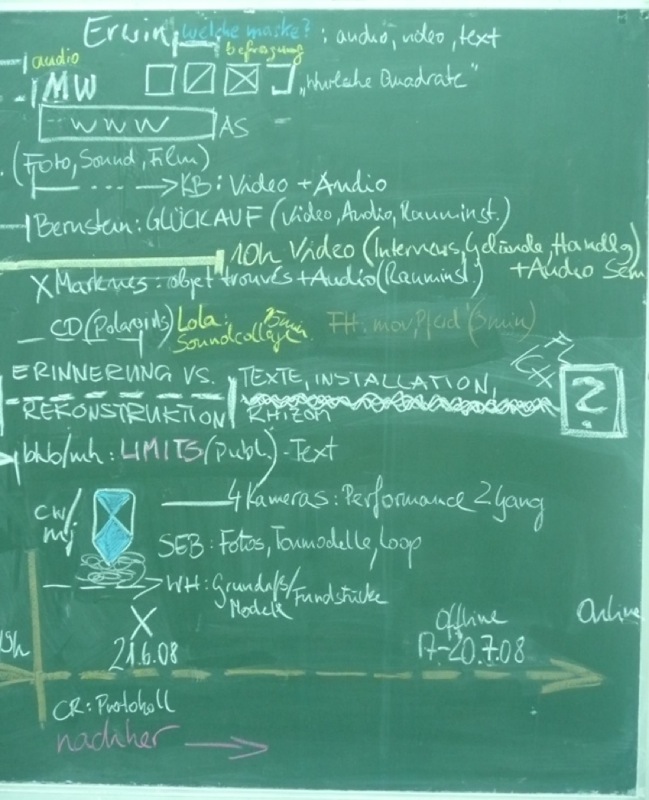 Erwin, welche maske? : audio, video, text
audio befragung
MW "Wirtsche Quadrate"
WWW AS
(Foto, Sound, Film)
KB: Video + Audio
Bernstein: GLÜCKAUF (Video, Audio, Rauminst.)
10h Video (Interviews, Gelände, Handlg)
+ Audio Sem
X Markenes: objet trouvés + Audio (Rauminst.)
CD (Polaroids) Lola: 15min FH: mov, Pferd (3min)
Soundcollage
ERINNERUNG VS. TEXTE, INSTALLATION,
REKONSTRUKTION RHIZOM
?
LIMITS (Publ.) - Text
4 Kameras: Performance 2 Gang
CW/
mj
SEB: Fotos, Tonmodelle, Loop
WH: Grundriss/Fundstücke
Modelle
X Offline Online
21.6.08 17-20.7.08
CR: Protokoll
nachher